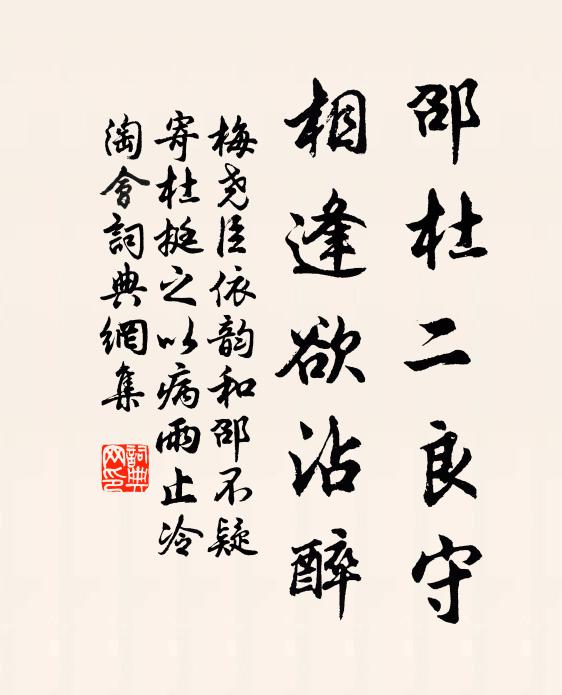 邵杜二良守
相逢欲沾醉
梅尧臣依韵和邵不疑
寄杜挺之以病雨止冷
淘會詞典網集
詞典网印